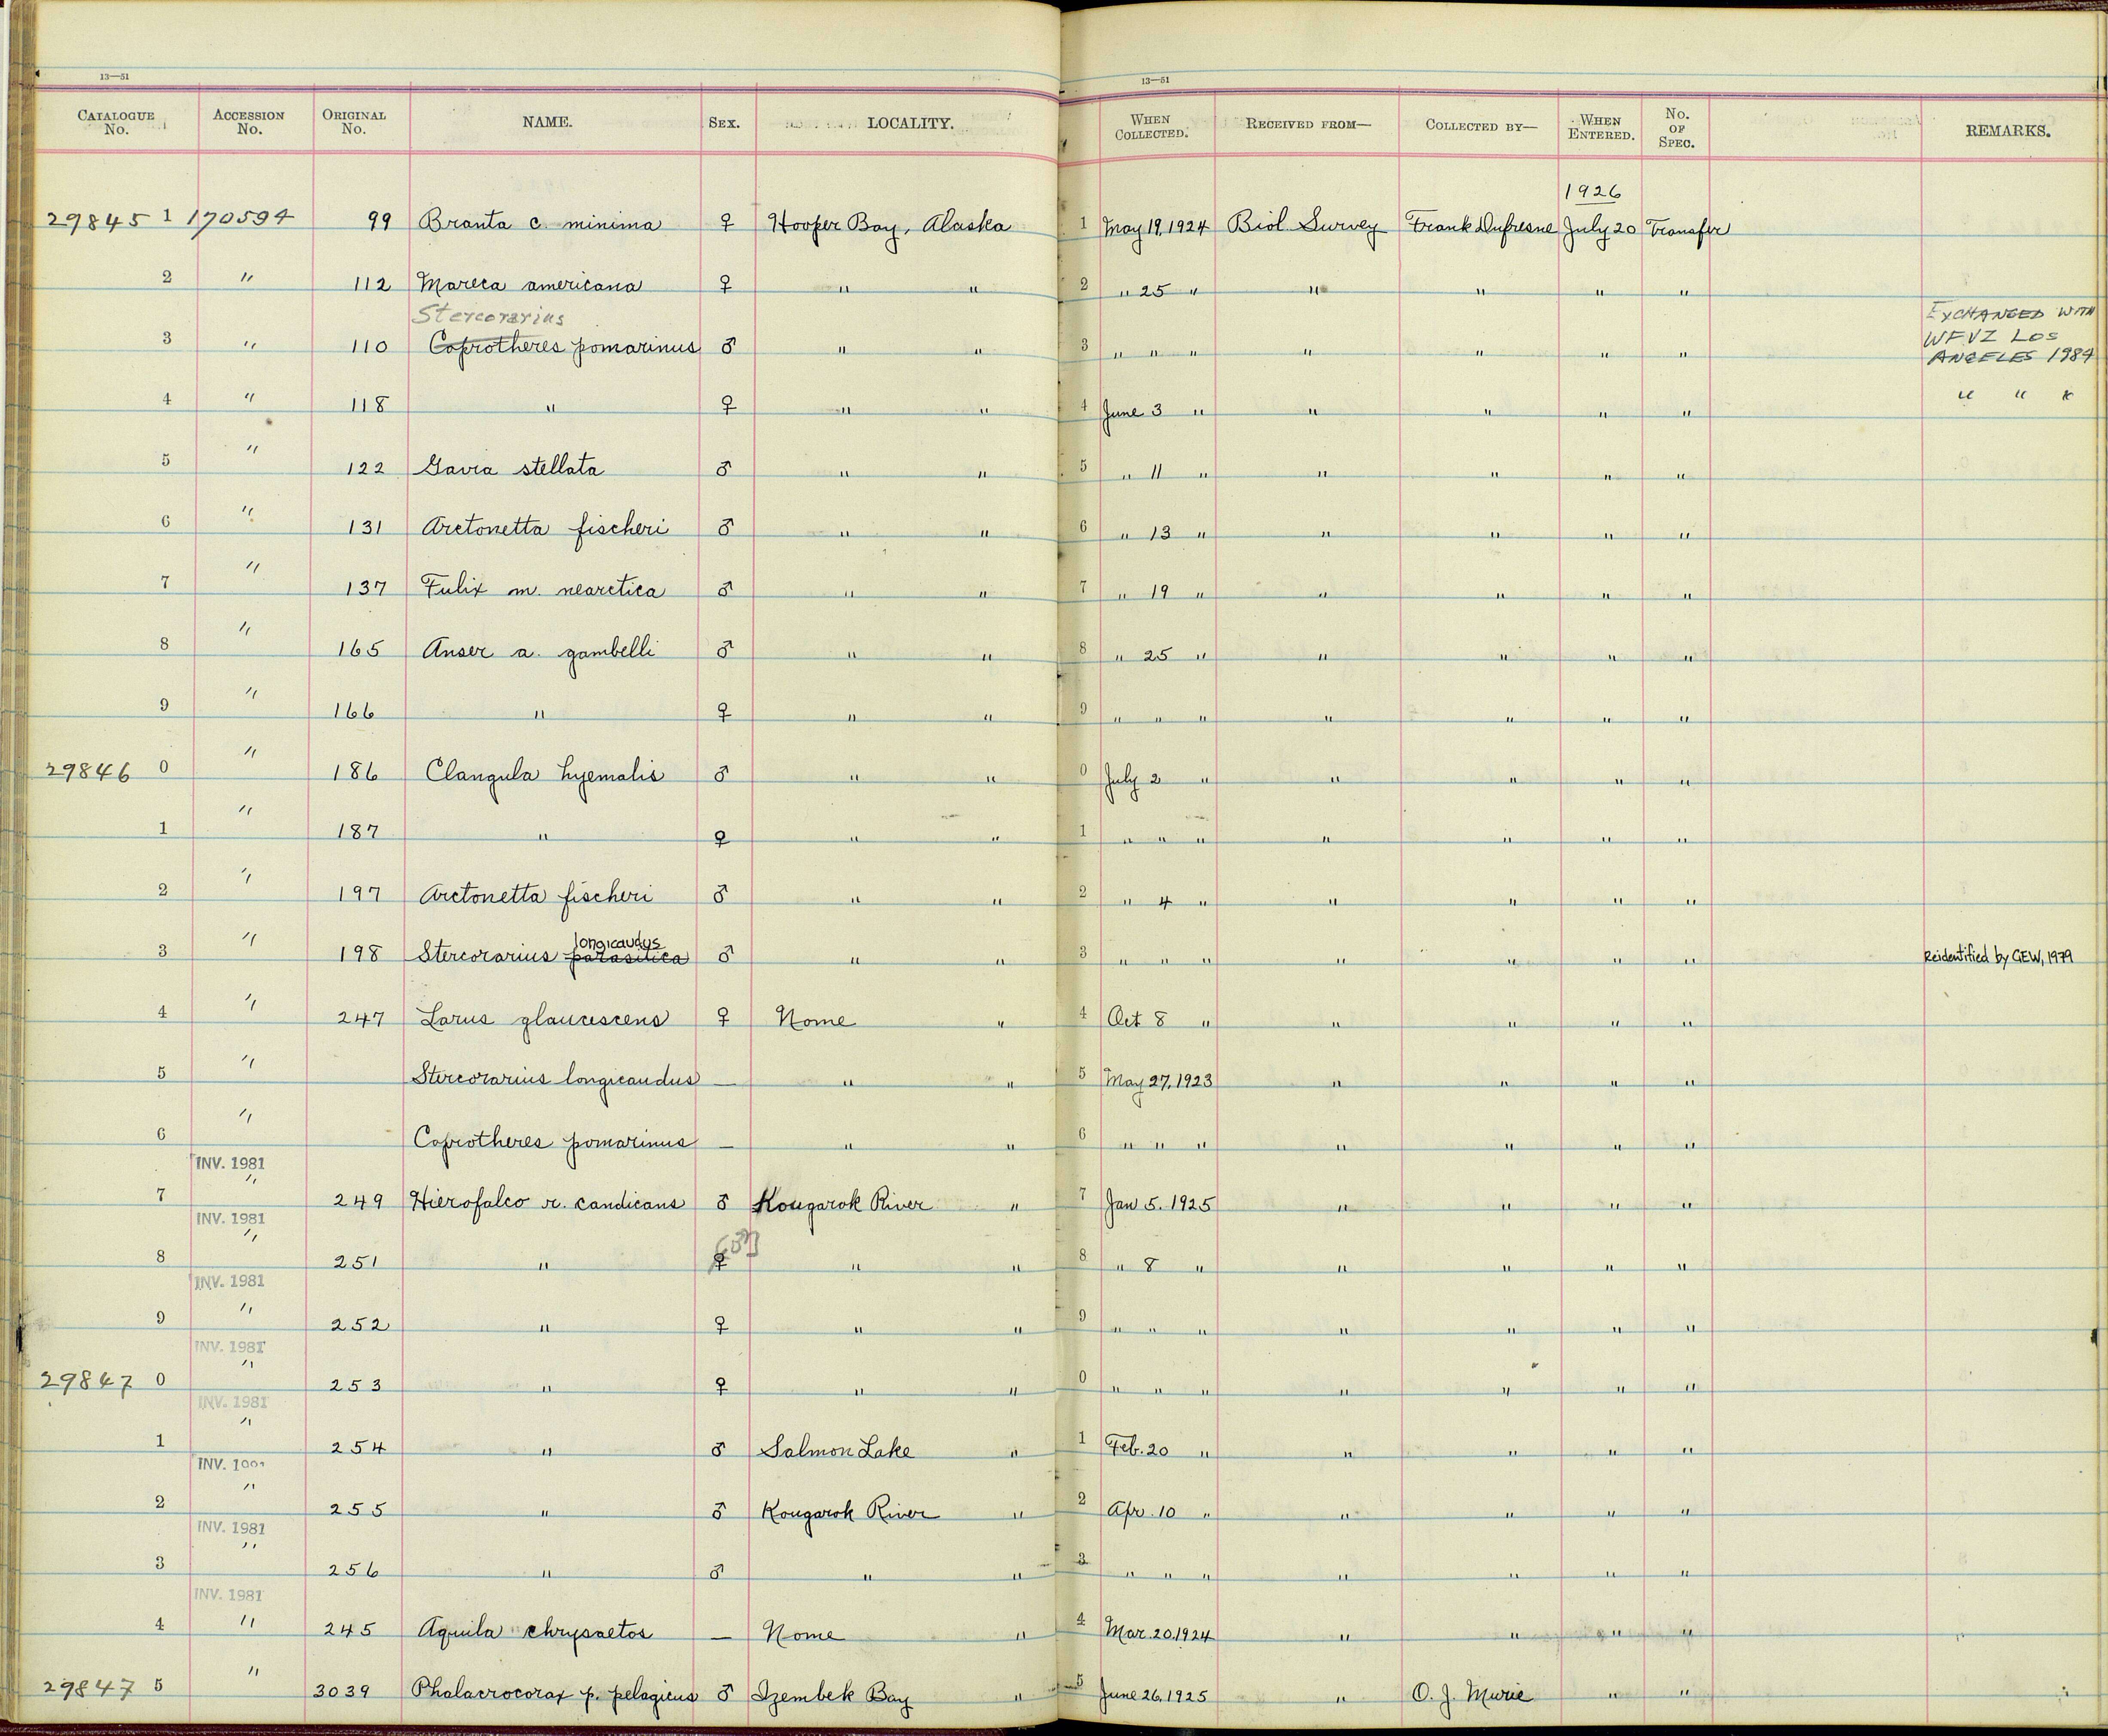 13—51 13—51
CATALOGUE No. ACCESSION No. ORIGINAL No. NAME. SEX. LOCALITY. WHEN COLLECTED. RECEIVED FROM— COLLECTED BY— WHEN ENTERED. No. OF SPEC. REMARKS.
1926
29845 1 170594 99 Branta c. minima ♀ Hooper Bay, Alaska 1 May 19, 1924 Biol. Survey Frank Dufresne July 20 Transfer
2 " 112 Mareca americana ♀ " " 2 " 25 " " " " "
Stercorarius EXCHANGED WITH
3 " 110 Coprotheres pomarinus ♂ " " 3 " " " " " " " WFVZ LOS
ANGELES 1984
4 " 118 " ♀ " " 4 June 3 " " " " " " " "
5 " 122 Gavia stellata ♂ " " 5 " 11 " " " " "
6 " 131 Arctonetta fischeri ♂ " " 6 " 13 " " " " "
7 " 137 Fulix m. nearctica ♂ " " 7 " 19 " " " " "
8 " 165 Anser a. gambelli ♂ " " 8 " 25 " " " " "
9 " 166 " ♀ " " 9 " " " " " " "
29846 0 " 186 Clangula hyemalis ♂ " " 0 July 2 " " " " "
1 " 187 " ♀ " " 1 " " " " " " "
2 " 197 Arctonetta fischeri ♂ " " 2 " 4 " " " " "
longicaudus
3 " 198 Stercorarius parasitica ♂ " " 3 " " " " " " " Reidentified by GEW, 1979
4 " 247 Larus glaucescens ♀ Nome " 4 Oct 8 " " " " "
5 " Stercorarius longicaudus — " " 5 May 27, 1923 " " " "
6 " Coprotheres pomarinus — " " 6 " " " " " " "
INV. 1981
7 " 249 Hierofalco r. candicans ♂ Kougarok River " 7 Jan 5. 1925 " " " "
INV. 1981
[♂]
8 " 251 " ♀ " " 8 " 8 " " " " "
INV. 1981
9 " 252 " ♀ " " 9 " " " " " " "
INV. 1981
29847 0 " 253 " ♀ " " 0 " " " " " " "
INV. 1981
1 " 254 " ♂ Salmon Lake " 1 Feb. 20 " " " " "
INV.
2 " 255 " ♂ Kougarok River " 2 Apr. 10 " " " " "
INV. 1981
3 " 256 " ♂ " " 3 " " " " " " "
INV. 1981
4 " 245 Aquila chrysaetos — Nome " 4 Mar. 20. 1924 " " " "
29847 5 " 3039 Phalacrocorax p. pelagicus ♂ Izembek Bay " 5 June 26, 1925 " O. J. Murie " "